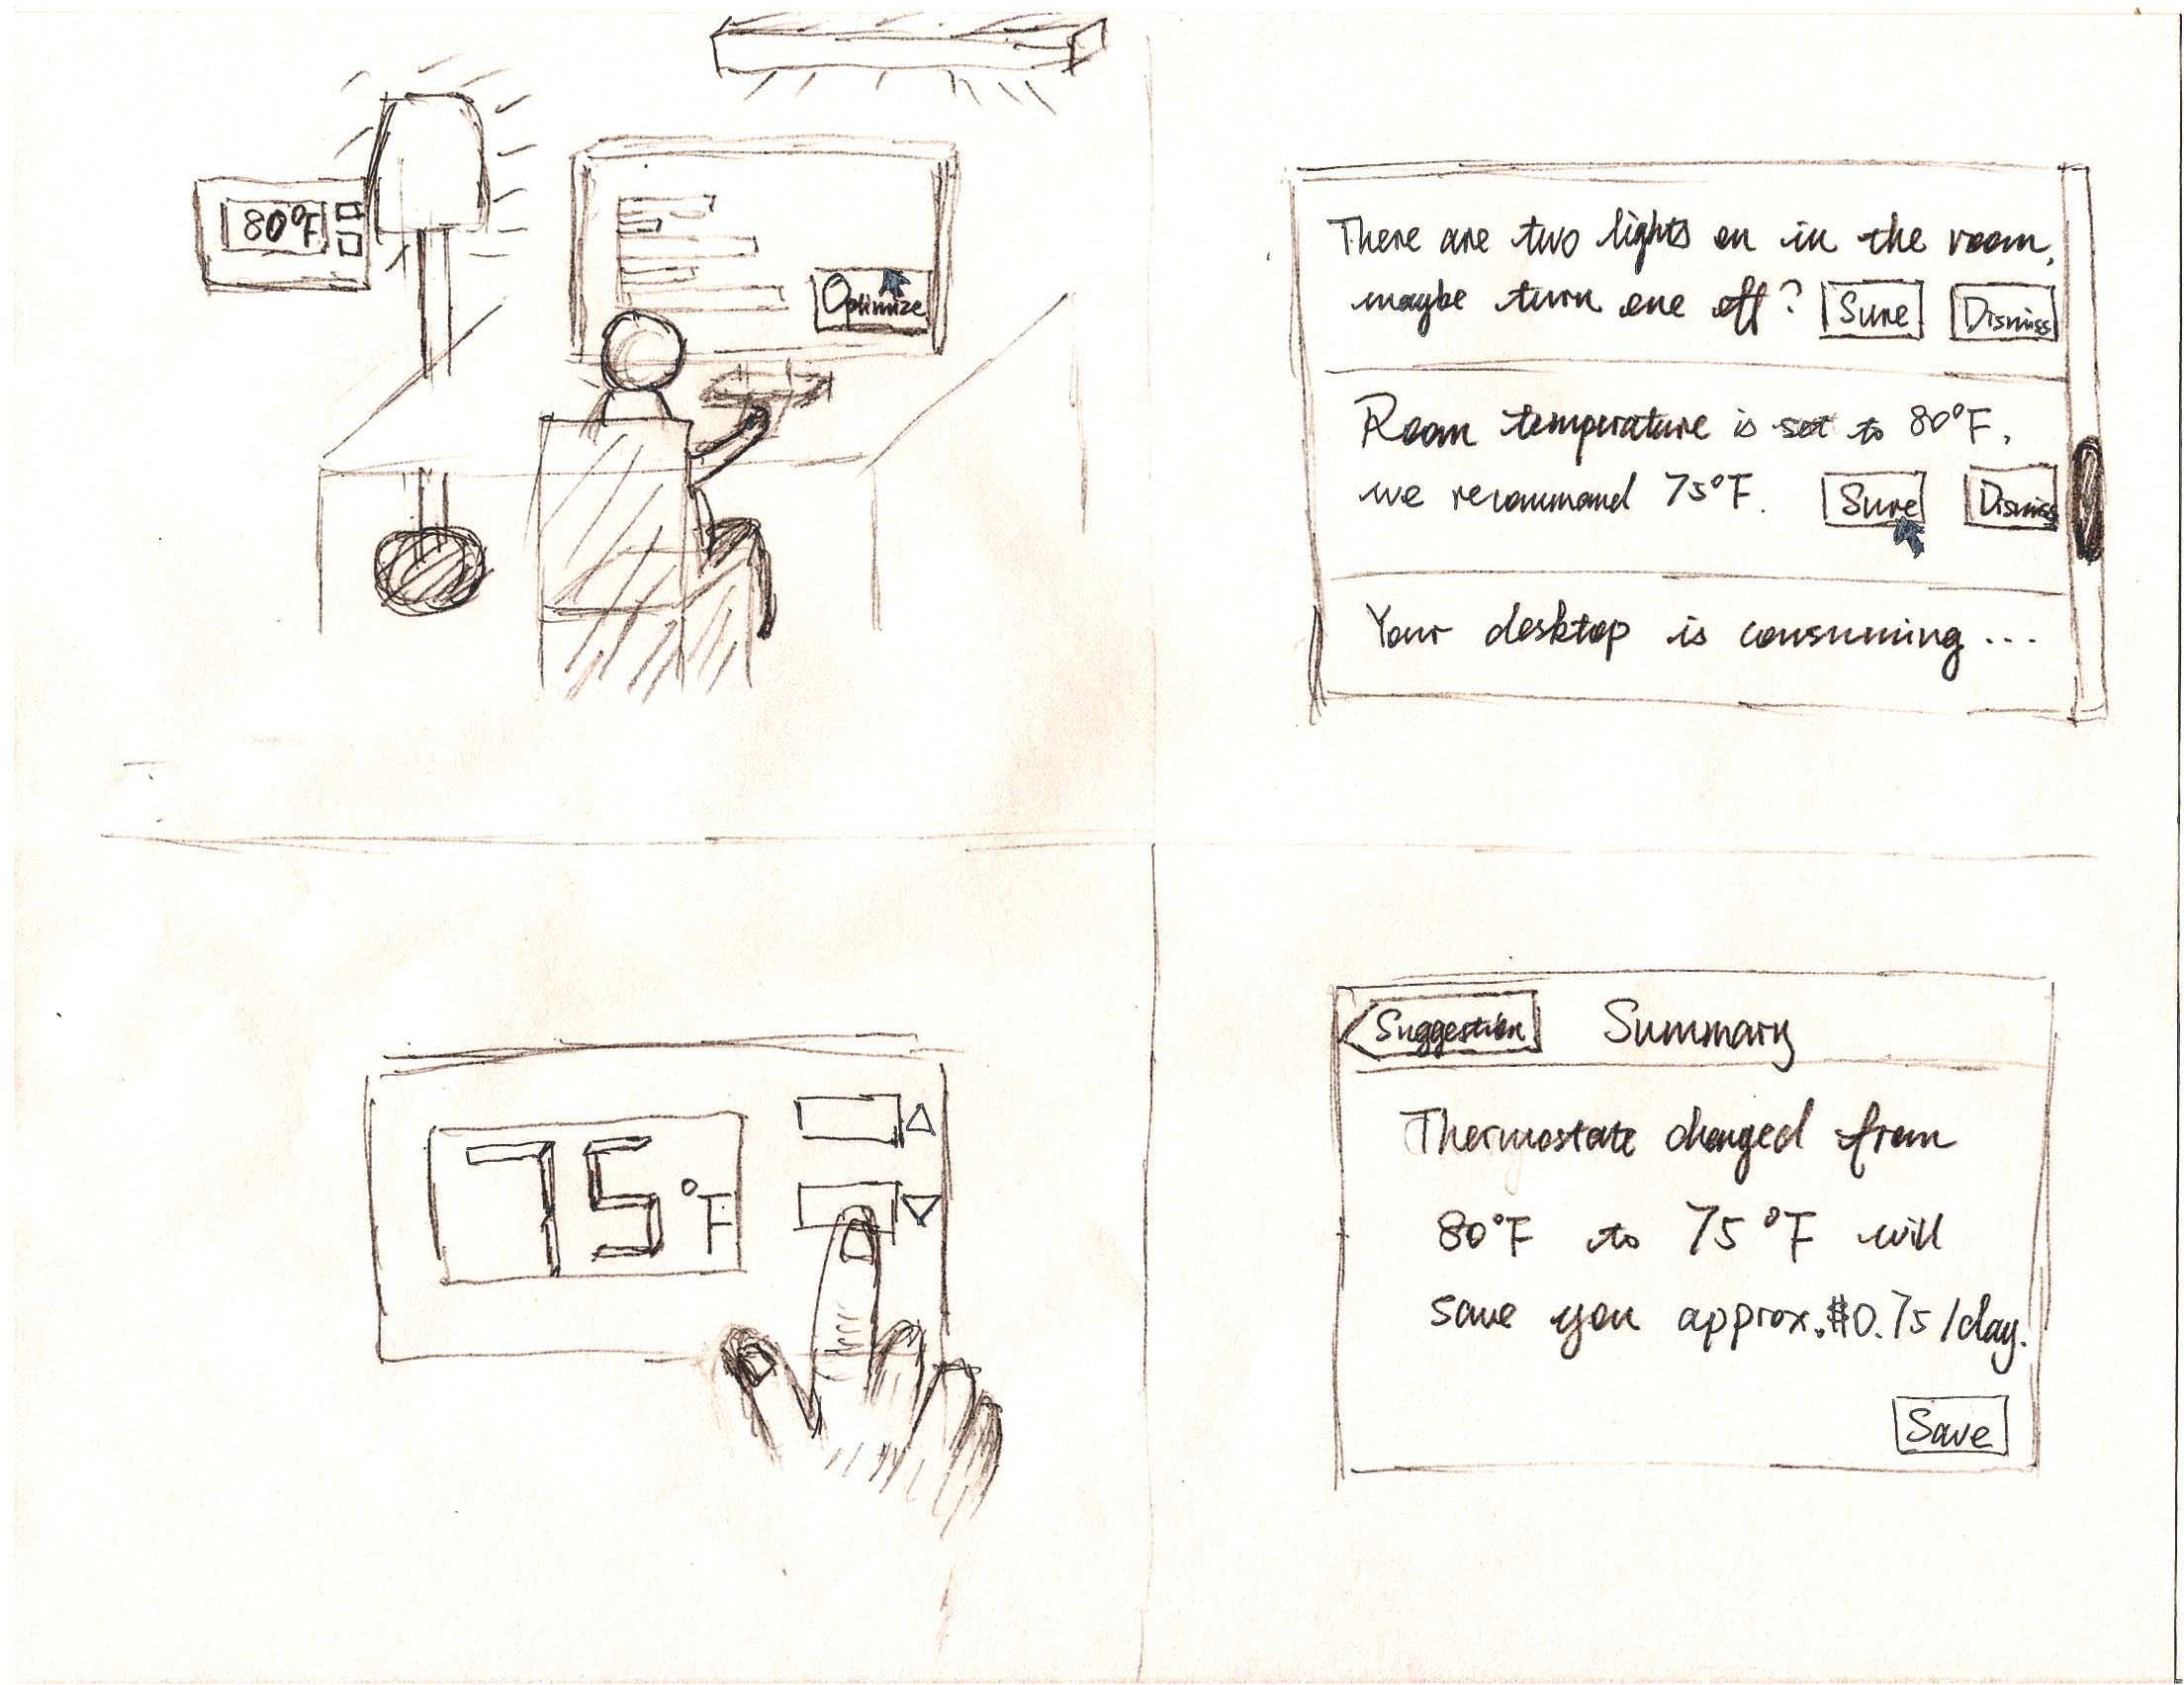 80°F
Optimize
There are two lights on in the room,
maybe turn one off? Sure Dismiss
Room temperature is set to 80°F,
we recommand 75°F. Sure Dismiss
Your desktop is consuming ...
75°F
Suggestion Summary
Thermostate changed from
80°F to 75°F will
save you approx. $0.75/day.
Save